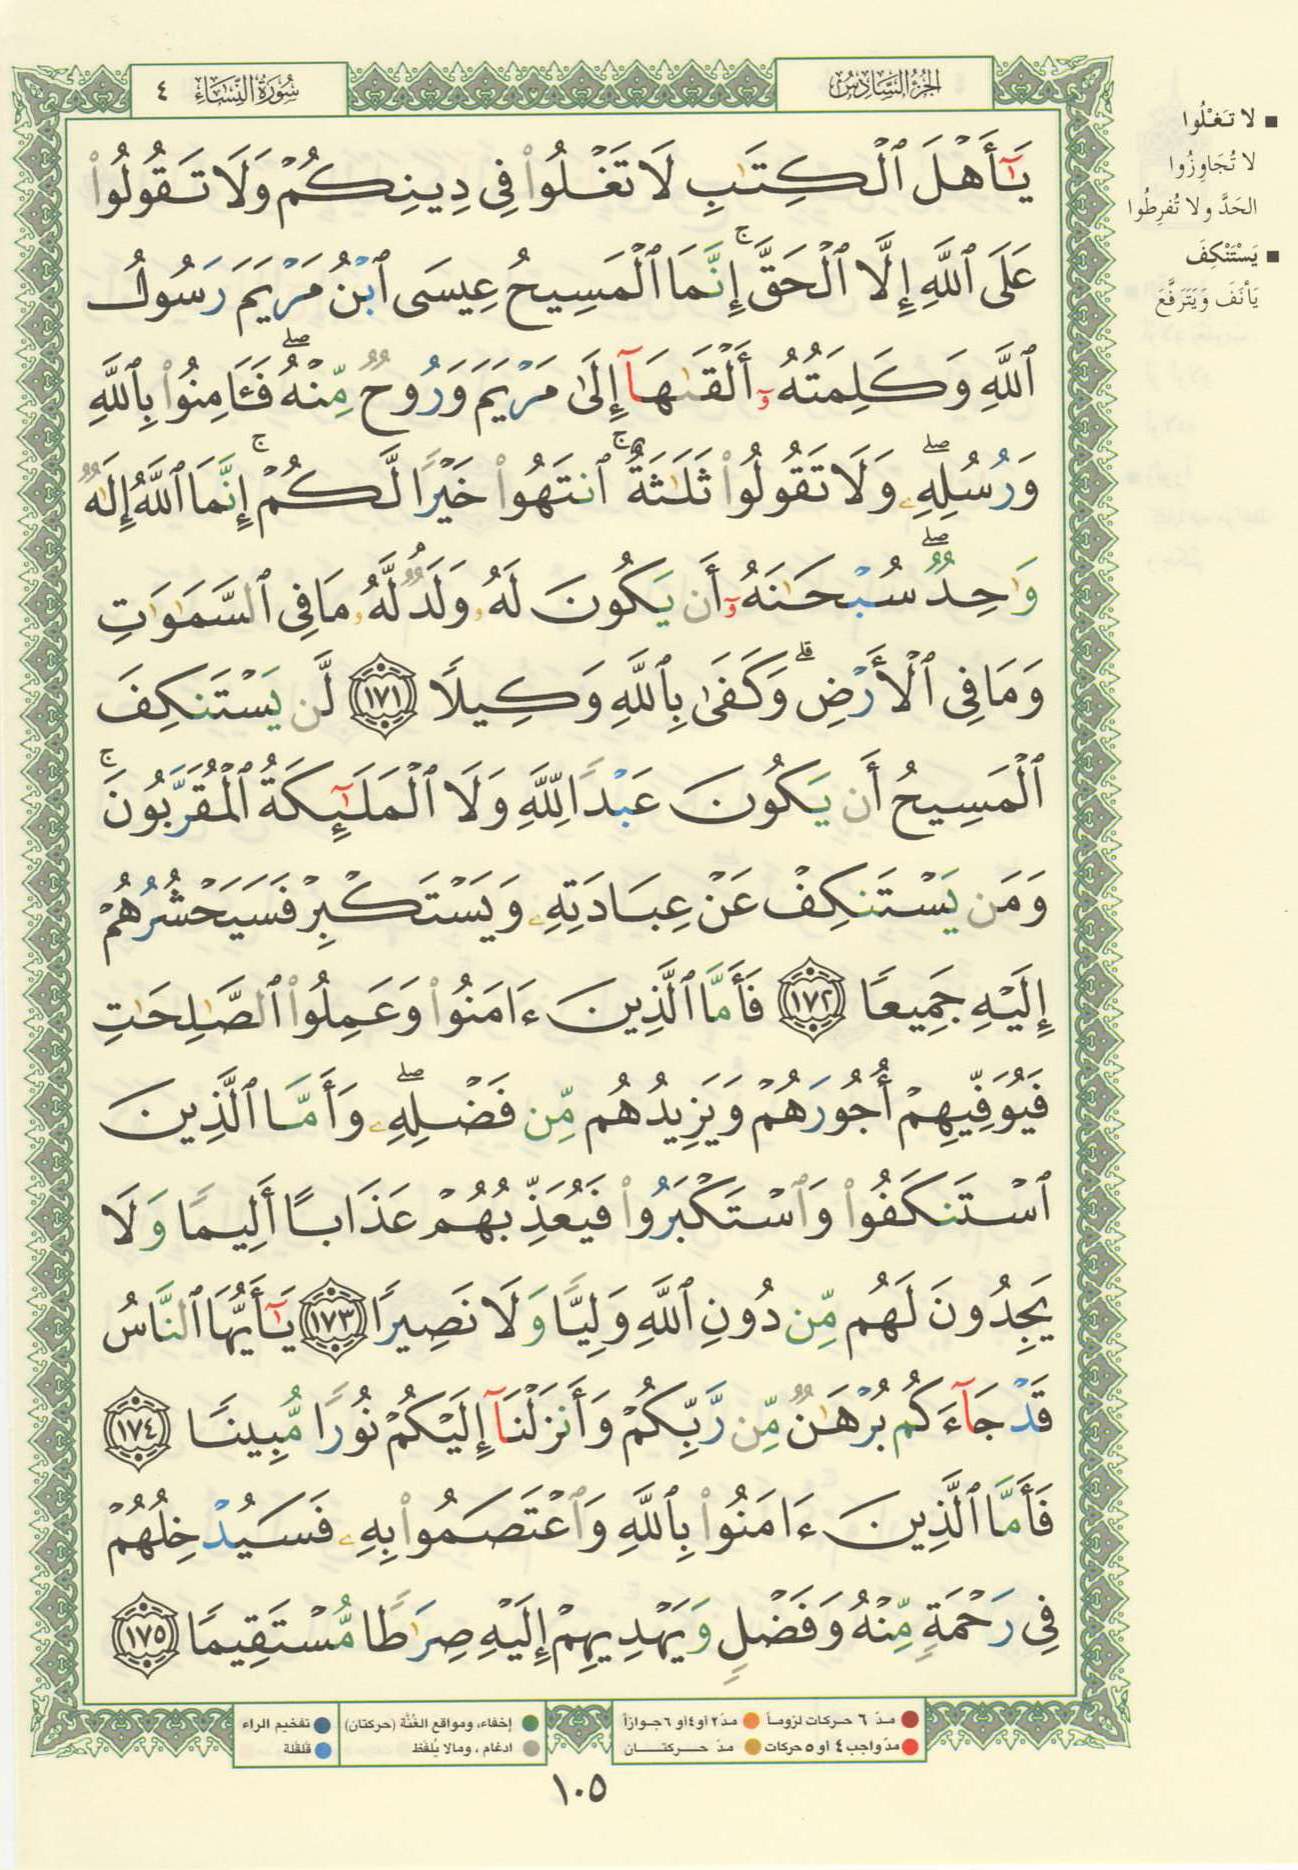 الجزء السادس
سورة النساء ٤
يَٰٓأَهْلَ ٱلْكِتَٰبِ لَا تَغْلُوا۟ فِى دِينِكُمْ وَلَا تَقُولُوا۟
عَلَى ٱللَّهِ إِلَّا ٱلْحَقَّ ۚ إِنَّمَا ٱلْمَسِيحُ عِيسَى ٱبْنُ مَرْيَمَ رَسُولُ
ٱللَّهِ وَكَلِمَتُهُۥٓ أَلْقَىٰهَآ إِلَىٰ مَرْيَمَ وَرُوحٌ مِّنْهُ ۖ فَـَٔامِنُوا۟ بِٱللَّهِ
وَرُسُلِهِۦ ۖ وَلَا تَقُولُوا۟ ثَلَٰثَةٌ ۚ ٱنتَهُوا۟ خَيْرًا لَّكُمْ ۚ إِنَّمَا ٱللَّهُ إِلَٰهٌ
وَٰحِدٌ ۖ سُبْحَٰنَهُۥٓ أَن يَكُونَ لَهُۥ وَلَدٌ ۘ لَّهُۥ مَا فِى ٱلسَّمَٰوَٰتِ
وَمَا فِى ٱلْأَرْضِ ۗ وَكَفَىٰ بِٱللَّهِ وَكِيلًا ١٧١ لَّن يَسْتَنكِفَ
ٱلْمَسِيحُ أَن يَكُونَ عَبْدًا لِّلَّهِ وَلَا ٱلْمَلَٰٓئِكَةُ ٱلْمُقَرَّبُونَ ۚ
وَمَن يَسْتَنكِفْ عَنْ عِبَادَتِهِۦ وَيَسْتَكْبِرْ فَسَيَحْشُرُهُمْ
إِلَيْهِ جَمِيعًا ١٧٢ فَأَمَّا ٱلَّذِينَ ءَامَنُوا۟ وَعَمِلُوا۟ ٱلصَّٰلِحَٰتِ
فَيُوَفِّيهِمْ أُجُورَهُمْ وَيَزِيدُهُم مِّن فَضْلِهِۦ ۖ وَأَمَّا ٱلَّذِينَ
ٱسْتَنكَفُوا۟ وَٱسْتَكْبَرُوا۟ فَيُعَذِّبُهُمْ عَذَابًا أَلِيمًا وَلَا
يَجِدُونَ لَهُم مِّن دُونِ ٱللَّهِ وَلِيًّا وَلَا نَصِيرًا ١٧٣ يَٰٓأَيُّهَا ٱلنَّاسُ
قَدْ جَآءَكُم بُرْهَٰنٌ مِّن رَّبِّكُمْ وَأَنزَلْنَآ إِلَيْكُمْ نُورًا مُّبِينًا ١٧٤
فَأَمَّا ٱلَّذِينَ ءَامَنُوا۟ بِٱللَّهِ وَٱعْتَصَمُوا۟ بِهِۦ فَسَيُدْخِلُهُمْ
فِى رَحْمَةٍ مِّنْهُ وَفَضْلٍ وَيَهْدِيهِمْ إِلَيْهِ صِرَٰطًا مُّسْتَقِيمًا ١٧٥
■ لا تَغْلُوا
لا تُجَاوِزُوا
الحَدَّ ولا تُفرِطُوا
■ يَسْتَنْكِفَ
يَأنَفَ وَيَتَرَفَّعَ
مدّ ٦ حركات لزوماً
مدّ ٢ أو ٤ أو ٦ جوازاً
مدّ واجب ٤ أو ٥ حركات
مدّ حركتان
إخفاء، ومواقع الغُنَّة (حركتان)
تفخيم الراء
ادغام، ومالا يُلفَظ
قلقلة
١٠٥